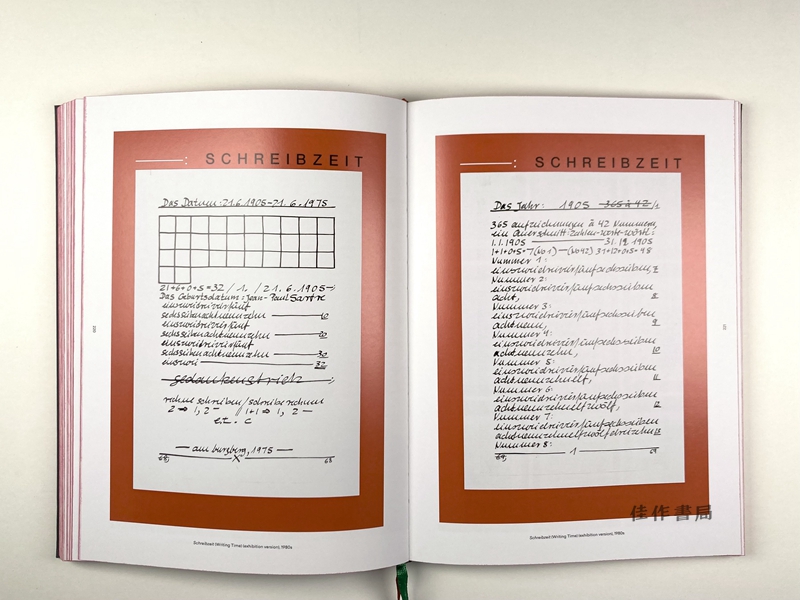 SCHREIBZEIT
Das Datum: 21.6.1905–21.6.1975
21+6+0+5=32 / 1. / 21.6.1905
Das Geburtsdatum: Jean-Paul Sartre
einszweidreivierfünf
sechssiebenachtneunzehn 10
einszweidreivierfünf
sechssiebenachtneunzehn 20
einszweidreivierfünf
sechssiebenachtneunzehn 30
einszwei 32
gedankenstrich
rechne schreiben/schreibe rechnen
2 → 1, 2 — 1+1 → 1, 2 —
am burgberg, 1975
68
Schreibzeit (Writing Time) (exhibition version), 1980s
SCHREIBZEIT
Das Jahr: 1905 365 à 42 /1
365 aufzeichnungen à 42 Nummern,
ein Querschnitt: Zahlen-Worte-Wörtl.:
1.1.1905 — 31.12.1905
1+1+0+5=7 (No 1) — (No 42) 31+12+0+5=48
Nummer 1:
einszweidreivierfünfsechssieben, 7
Nummer 2:
einszweidreivierfünfsechssieben
acht, 8
Nummer 3:
einszweidreivierfünfsechssieben
achtneun, 9
Nummer 4:
einszweidreivierfünfsechssieben
achtneunzehn, 10
Nummer 5:
einszweidreivierfünfsechssieben
achtneunzehnelf, 11
Nummer 6:
einszweidreivierfünfsechssieben
achtneunzehnelfzwölf, 12
Nummer 7:
einszweidreivierfünfsechssieben
achtneunzehnelfzwölfdreizehn 13
Nummer 8:
69, 1 69
Schreibzeit (Writing Time) (exhibition version), 1980s
佳作書局